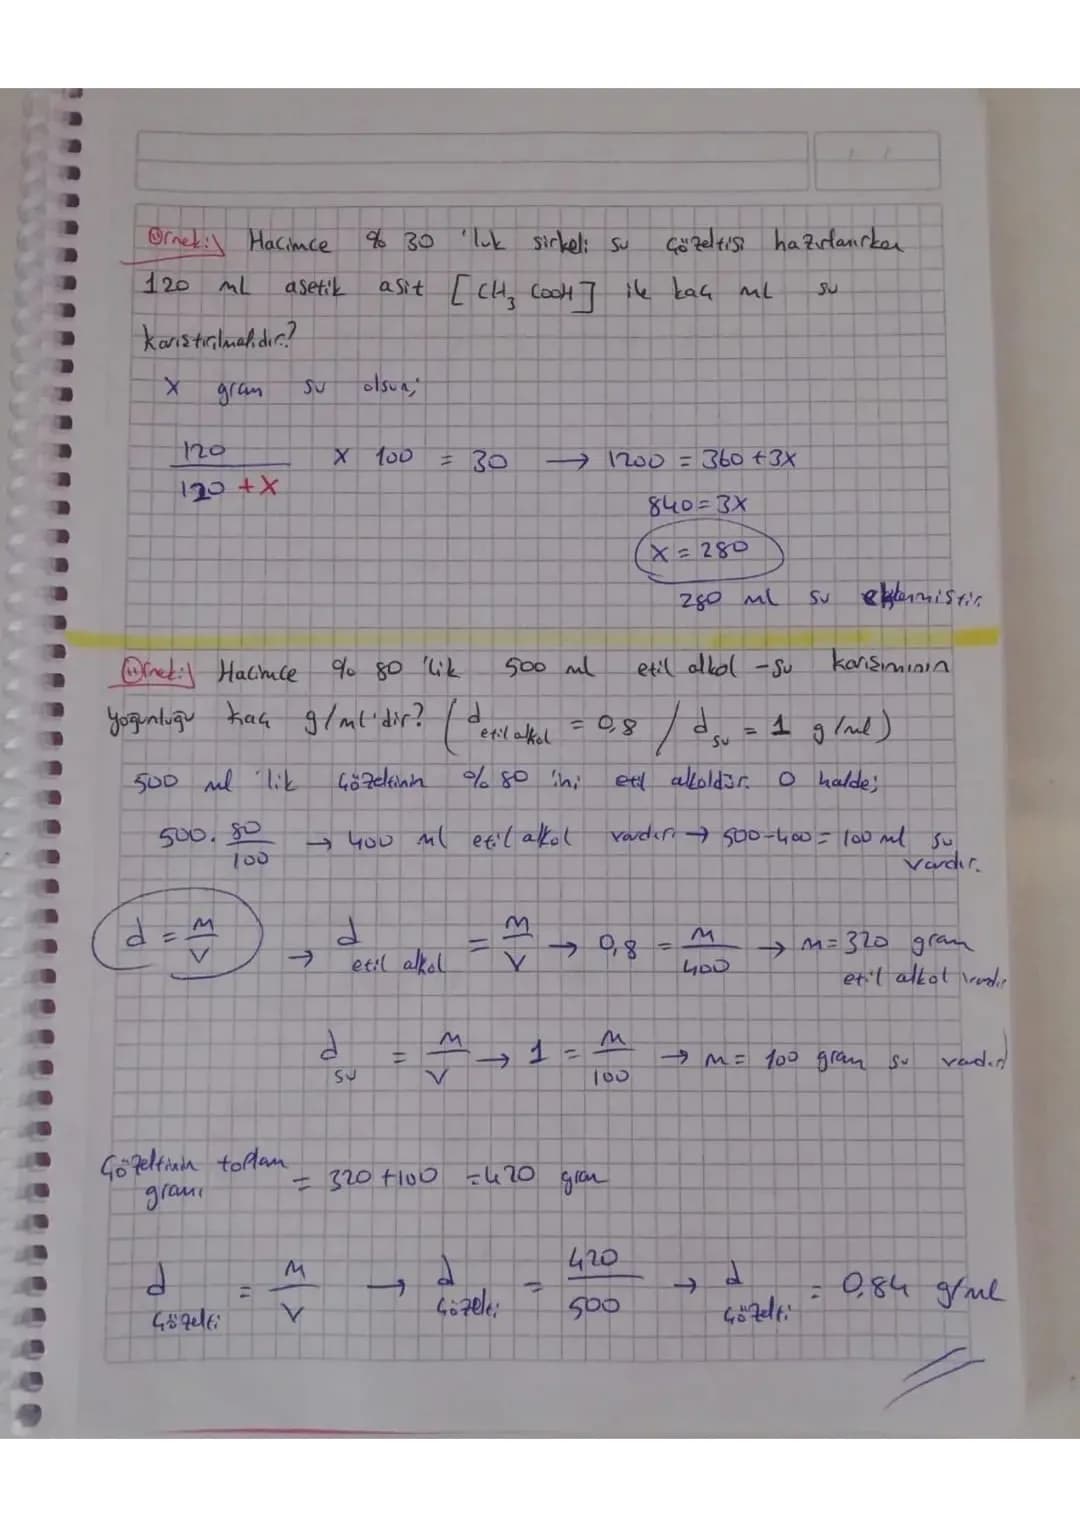 Örnek: Hacimce % 30 'luk sirkeli su çözeltisi hazırlanırken
120 ml asetik asit [CH₃ COOH] ile kaç ml su
karıştırılmalıdır?
X gram su olsun;
120 / 120 + X x 100 = 30 → 1200 = 360 + 3X
840 = 3X
X = 280
280 ml su eklenmiştir.
Örnek: Hacimce % 80 'lik 500 ml etil alkol - su karışımının
yoğunluğu kaç g/ml'dir? (d etil alkol = 0,8 / d su = 1 g/ml)
500 ml 'lik çözeltinin % 80 'ini etil alkoldür. O halde;
500 . 80/100 → 400 ml etil alkol vardır. → 500-400 = 100 ml su
vardır.
d = m/V → d etil alkol = m/V → 0,8 = m/400 → m = 320 gram
etil alkol vardır
d su = m/V → 1 = m/100 → m = 100 gram su vardır
Çözeltinin toplam
gramı = 320 + 100 = 420 gram
d çözelti = m/V → d çözelti = 420/500 → d çözelti = 0,84 g/ml